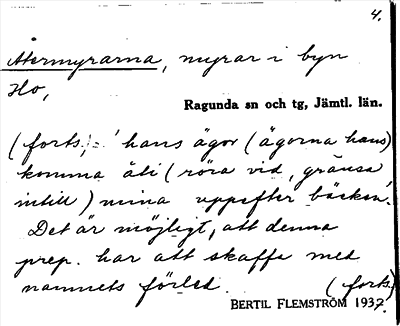 4.
Återmyrarna, myrar i byn
Ho,
Ragunda sn och tg, Jämtl. län.
(forts.) = 'hans ägor (ägorna hans)
komma åti (röra vid, gränsa
intill) mina uppefter bäcken'.
Det är möjligt, att denna
prep. har att skaffa med
namnets förled. (forts.)
BERTIL FLEMSTRÖM 1937.